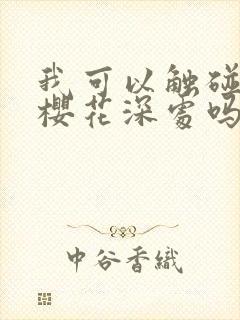 我可以触碰
櫻花深處吗
中谷香織